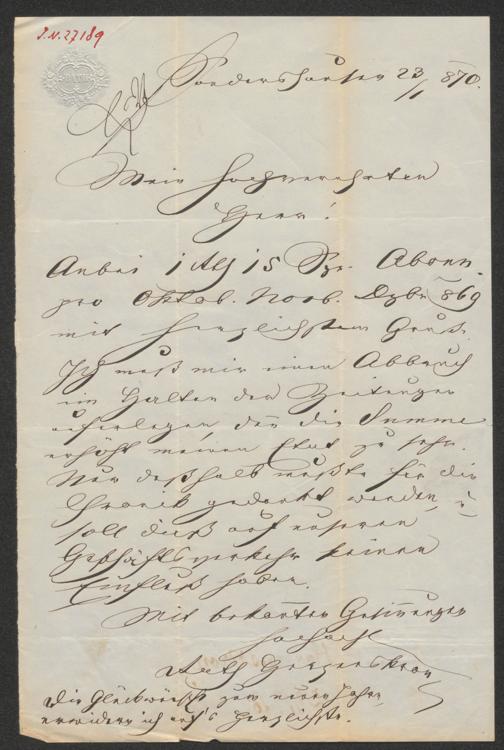 J.N. 27189
BATH
Sondershausen 23/1 870.
Mein hochverehrter
Herr!
Anbei 1 15 Abonn.
pro Oktob. Novb. Dzbr 869
mit herzlichstem Gruß.
Ich muß mir einen Abbruch
im Halten der Zeitungen
auferlegen, den die Summe
erhöht meinen Etat zu sehr.
Nur deßhalb mußte für die
Chronik gedankt werden, u
soll dieß auf unseren
Geschäftsverkehr keinen
Einfluß haben.
Mit bekannten Gesinnungen
hochacht
Die Glückwünsche zum neuen Jahre
erwidere ich auf's Herzlichste.